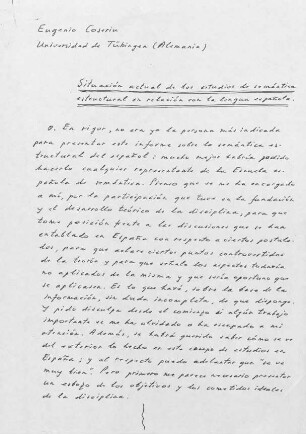 Eugenio Coseriu
Universidad de Tübingen (Alemania)
Situación actual de los estudios de semántica
estructural en relación con la lengua española.
0. En rigor, no era yo la persona más indicada
para presentar este informe sobre la semántica es-
tructural del español: mucho mejor habría podido
hacerlo cualquier representante de la Escuela es-
pañola de semántica. Pienso que se me ha encargado
a mí, por la participación que tuve en la fundación
y el desarrollo teórico de la disciplina; para que
tome posición frente a las discusiones que se han
entablado en España con respecto a ciertos postula-
dos, para que aclare ciertos puntos controvertidos
de la teoría y para que señale los aspectos todavía
no aplicados de la misma y que sería oportuno que
se aplicasen. Es lo que haré, sobre la base de la
información, sin duda incompleta, de que dispongo.
Y pido disculpa desde el comienzo si algún trabajo
importante se me ha olvidado o ha escapado a mi
atención. Además, se habrá querido saber cómo se ve
del exterior lo hecho en este campo de estudios en
España; y al respecto puedo adelantar que "se ve
muy bien". Pero primero me parece necesario presentar
un esbozo de los objetivos y los cometidos ideales
de la disciplina.